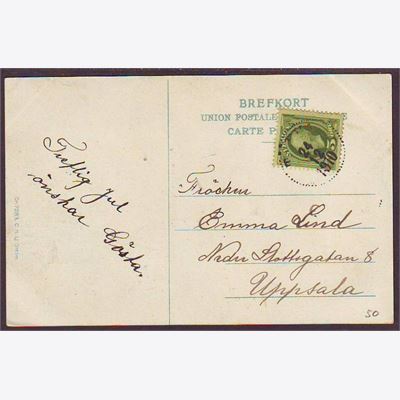 BREFKORT
UNION POSTALE
CARTE P
24
1910
Treflig Jul
önskar
Gösta.
Fröcken
Emma Lind
Nedre Slottsgatan 8
Uppsala
50